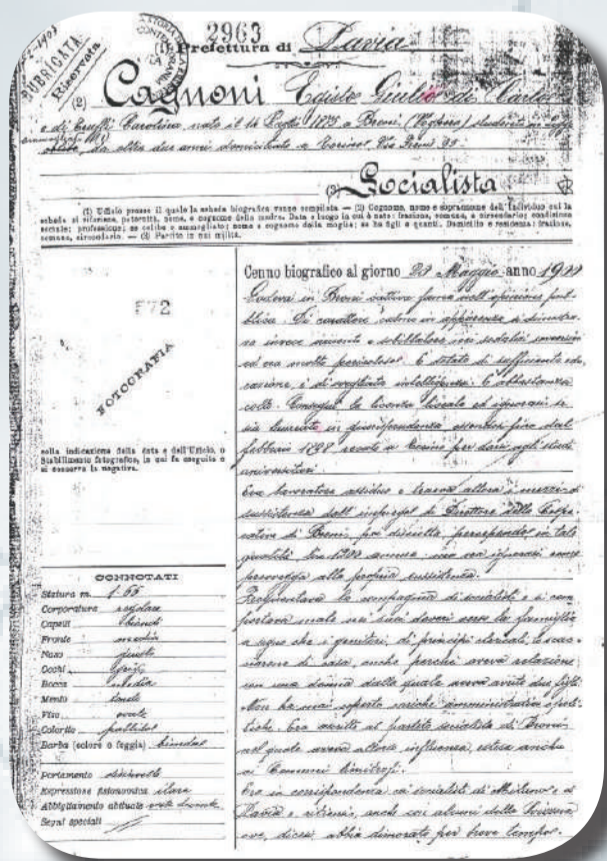 2963
(1) Prefettura di Pavia
RUBRICATA
Riservata
(2) Cagnoni Egisto Giulio di Carlo
e di Carolina, nato il 1875 a Broni (Voghera) studente in
da oltre due anni domiciliato a Torino, Via 35
(3) Socialista
(1) Ufficio presso il quale la scheda biografica venne compilata. — (2) Cognome, nome e soprannome dell'individuo cui la
scheda si riferisce, paternità, nome, e cognome della madre. Data e luogo in cui è nato: frazione, comune, e circondario; condizione
sociale; professione; se celibe o ammogliato; nome e cognome della moglie; se ha figli e quanti. Domicilio e residenza: frazione,
comune, circondario. — (3) Partito in cui milita.
F72
FOTOGRAFIA
colla indicazione della data e dell'Ufficio, o
Stabilimento fotografico, in cui fu eseguita e
si conserva la negativa.
CONNOTATI
Statura m. 1.65
Corporatura regolare
Capelli biondi
Fronte media
Naso giusto
Occhi grigi
Bocca media
Mento tondo
Viso ovale
Colorito pallido
Barba (colore o foggia) bionda
Portamento disinvolto
Espressione fisionomica ilare
Abbigliamento abituale
Segni speciali //
Cenno biografico al giorno 23 Maggio anno 19
Godeva in Broni cattiva fama nell'opinione pub-
blica. Di carattere calmo in apparenza si dimostra-
va invece violento e coi sodalizi sovversivi
ed era molto pericoloso. È dotato di sufficiente edu-
cazione, è di svegliata intelligenza. È abbastanza
colto. Conseguì la licenza liceale ed ignorasi se
sia laureato in giurisprudenza essendosi fino dal
febbraio 1898 recato a Torino per darsi agli studi
universitari.
Era lavoratore assiduo e traeva allora i mezzi di
sussistenza dall'impiego di Direttore della Coope-
rativa di Broni, poi disciolta percependo in tale
qualità lire 1200 annue, ma ora ignorasi come
provvegga alla propria sussistenza.
Frequentava la compagnia di socialisti e si com-
portava male nei suoi doveri verso la famiglia
a segno che i genitori, di principi clericali, lo scac-
ciarono di casa, anche perchè aveva relazione
con una donna dalla quale aveva avuto due figli.
Non ha mai coperto cariche amministrative e poli-
tiche. Era ascritto al partito socialista di Broni
nel quale aveva allora influenza, estesa anche
ai Comuni limitrofi.
Era in corrispondenza coi socialisti di Milano e di
Pavia e ritiensi, anche con alcuni della Svizzera
ove, dicesi, abbia dimorato per breve tempo.